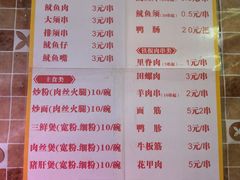 鱿鱼肉 3元/串
大须串 3元/串
排须串 3元/串
鱿鱼仔 5元/串
鱿鱼嘴 3元/串
主食类
炒粉(肉丝火腿)10/碗
炒面(肉丝火腿)10/碗
三鲜煲(宽粉.细粉)10/碗
肉丝煲(宽粉.细粉)10/碗
猪肝煲(宽粉.细粉)10/碗
鱿鱼须 0.5/串
鸭肠 2元/串
铁板肉串类
里脊肉 3元/串
田螺肉 3元/串
羊肉串 5元/串
面筋 5元2串
鸭胗 3元/串
牛板筋 3元/串
花甲肉 5元/串